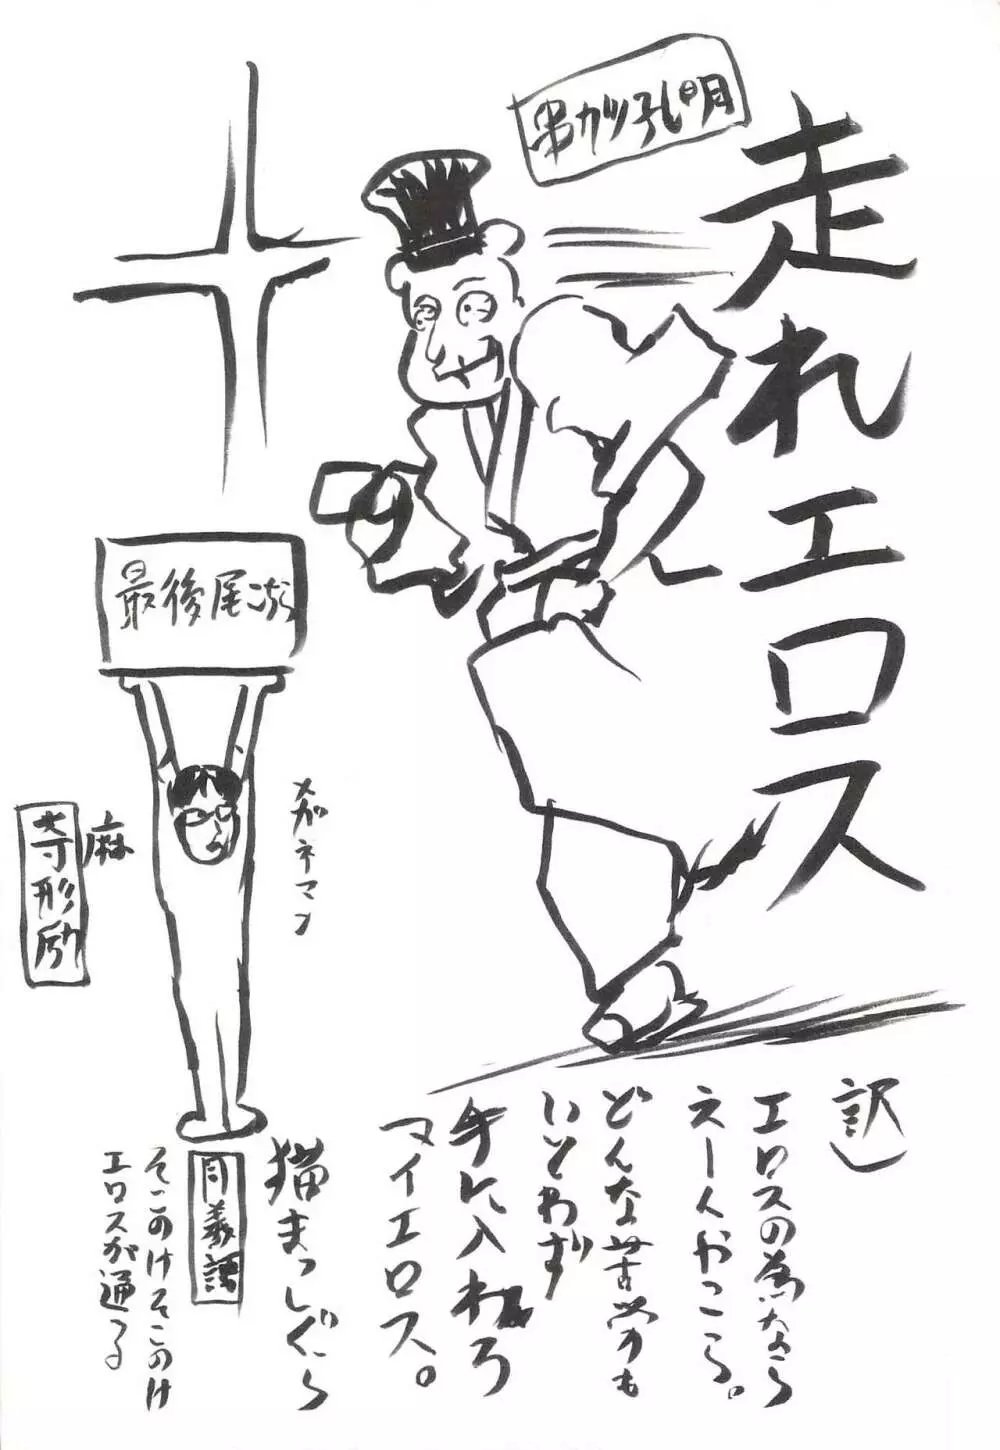 走れエロス
串カツ孔明
最後尾
メガネマン
麻
寺形励
訳)
エロスの為なら
えーんやこら。
どんな苦労も
いとわず
手に入れろ
マイエロス。
同義語
猫まっしぐら
そこのけそこのけ
エロスが通る